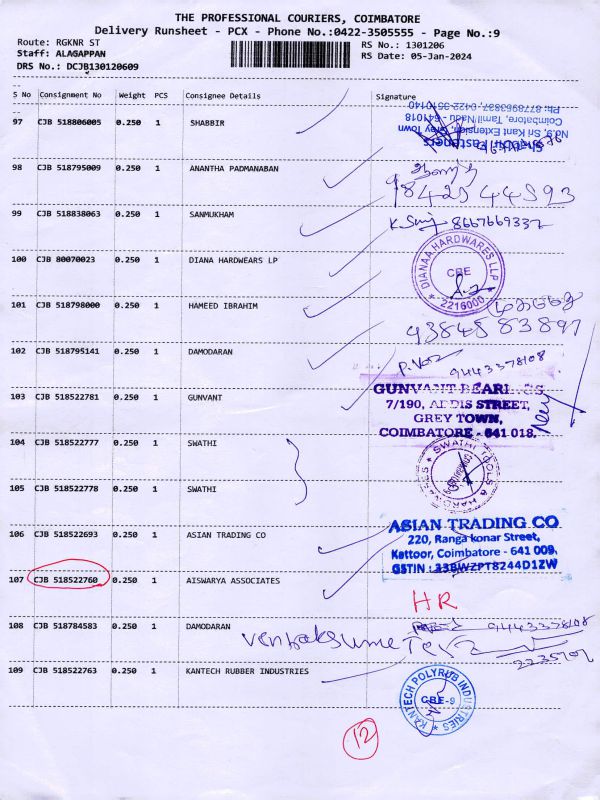 THE PROFESSIONAL COURIERS, COIMBATORE
Delivery Runsheet - PCX - Phone No.:0422-3505555 - Page No.:9
Route: RGKNR ST
Staff: ALAGAPPAN
DRS No.: DCJB130120609
RS No.: 1301206
RS Date: 05-Jan-2024
S No Consignment No Weight PCS Consignee Details Signature
97 CJB 518806005 0.250 1 SHABBIR
No.9, Sri Kant Extension, Grey Town
Coimbatore, Tamil Nadu - 641018
98 CJB 518795009 0.250 1 ANANTHA PADMANABAN
98425 44593
99 CJB 518838063 0.250 1 SANMUKHAM
8667669337
100 CJB 80070023 0.250 1 DIANA HARDWEARS LP
DIANAA HARDWARES LLP
CBE
2216000
101 CJB 518798000 0.250 1 HAMEED IBRAHIM
9384583897
102 CJB 518795141 0.250 1 DAMODARAN
9443378108
103 CJB 518522781 0.250 1 GUNVANT
GUNVANT BEARINGS
7/190, ADDIS STREET,
GREY TOWN,
COIMBATORE - 641 018.
104 CJB 518522777 0.250 1 SWATHI
SWATHI TOOLS & HARDWARES
105 CJB 518522778 0.250 1 SWATHI
106 CJB 518522693 0.250 1 ASIAN TRADING CO
ASIAN TRADING CO
220, Ranga konar Street,
Kattoor, Coimbatore - 641 009.
GSTIN : 33BWZPT8244D1ZW
107 CJB 518522760 0.250 1 AISWARYA ASSOCIATES
HR
108 CJB 518784583 0.250 1 DAMODARAN
9443378108
109 CJB 518522763 0.250 1 KANTECH RUBBER INDUSTRIES
KANTECH POLYRUB INDUSTRIES
CBE-9
12